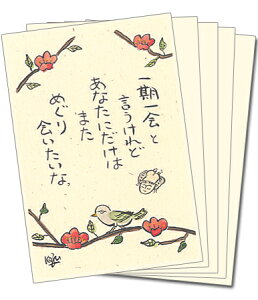 一期一会と
言うけれど
あなたにだけは
また
めぐり
会いたいな。